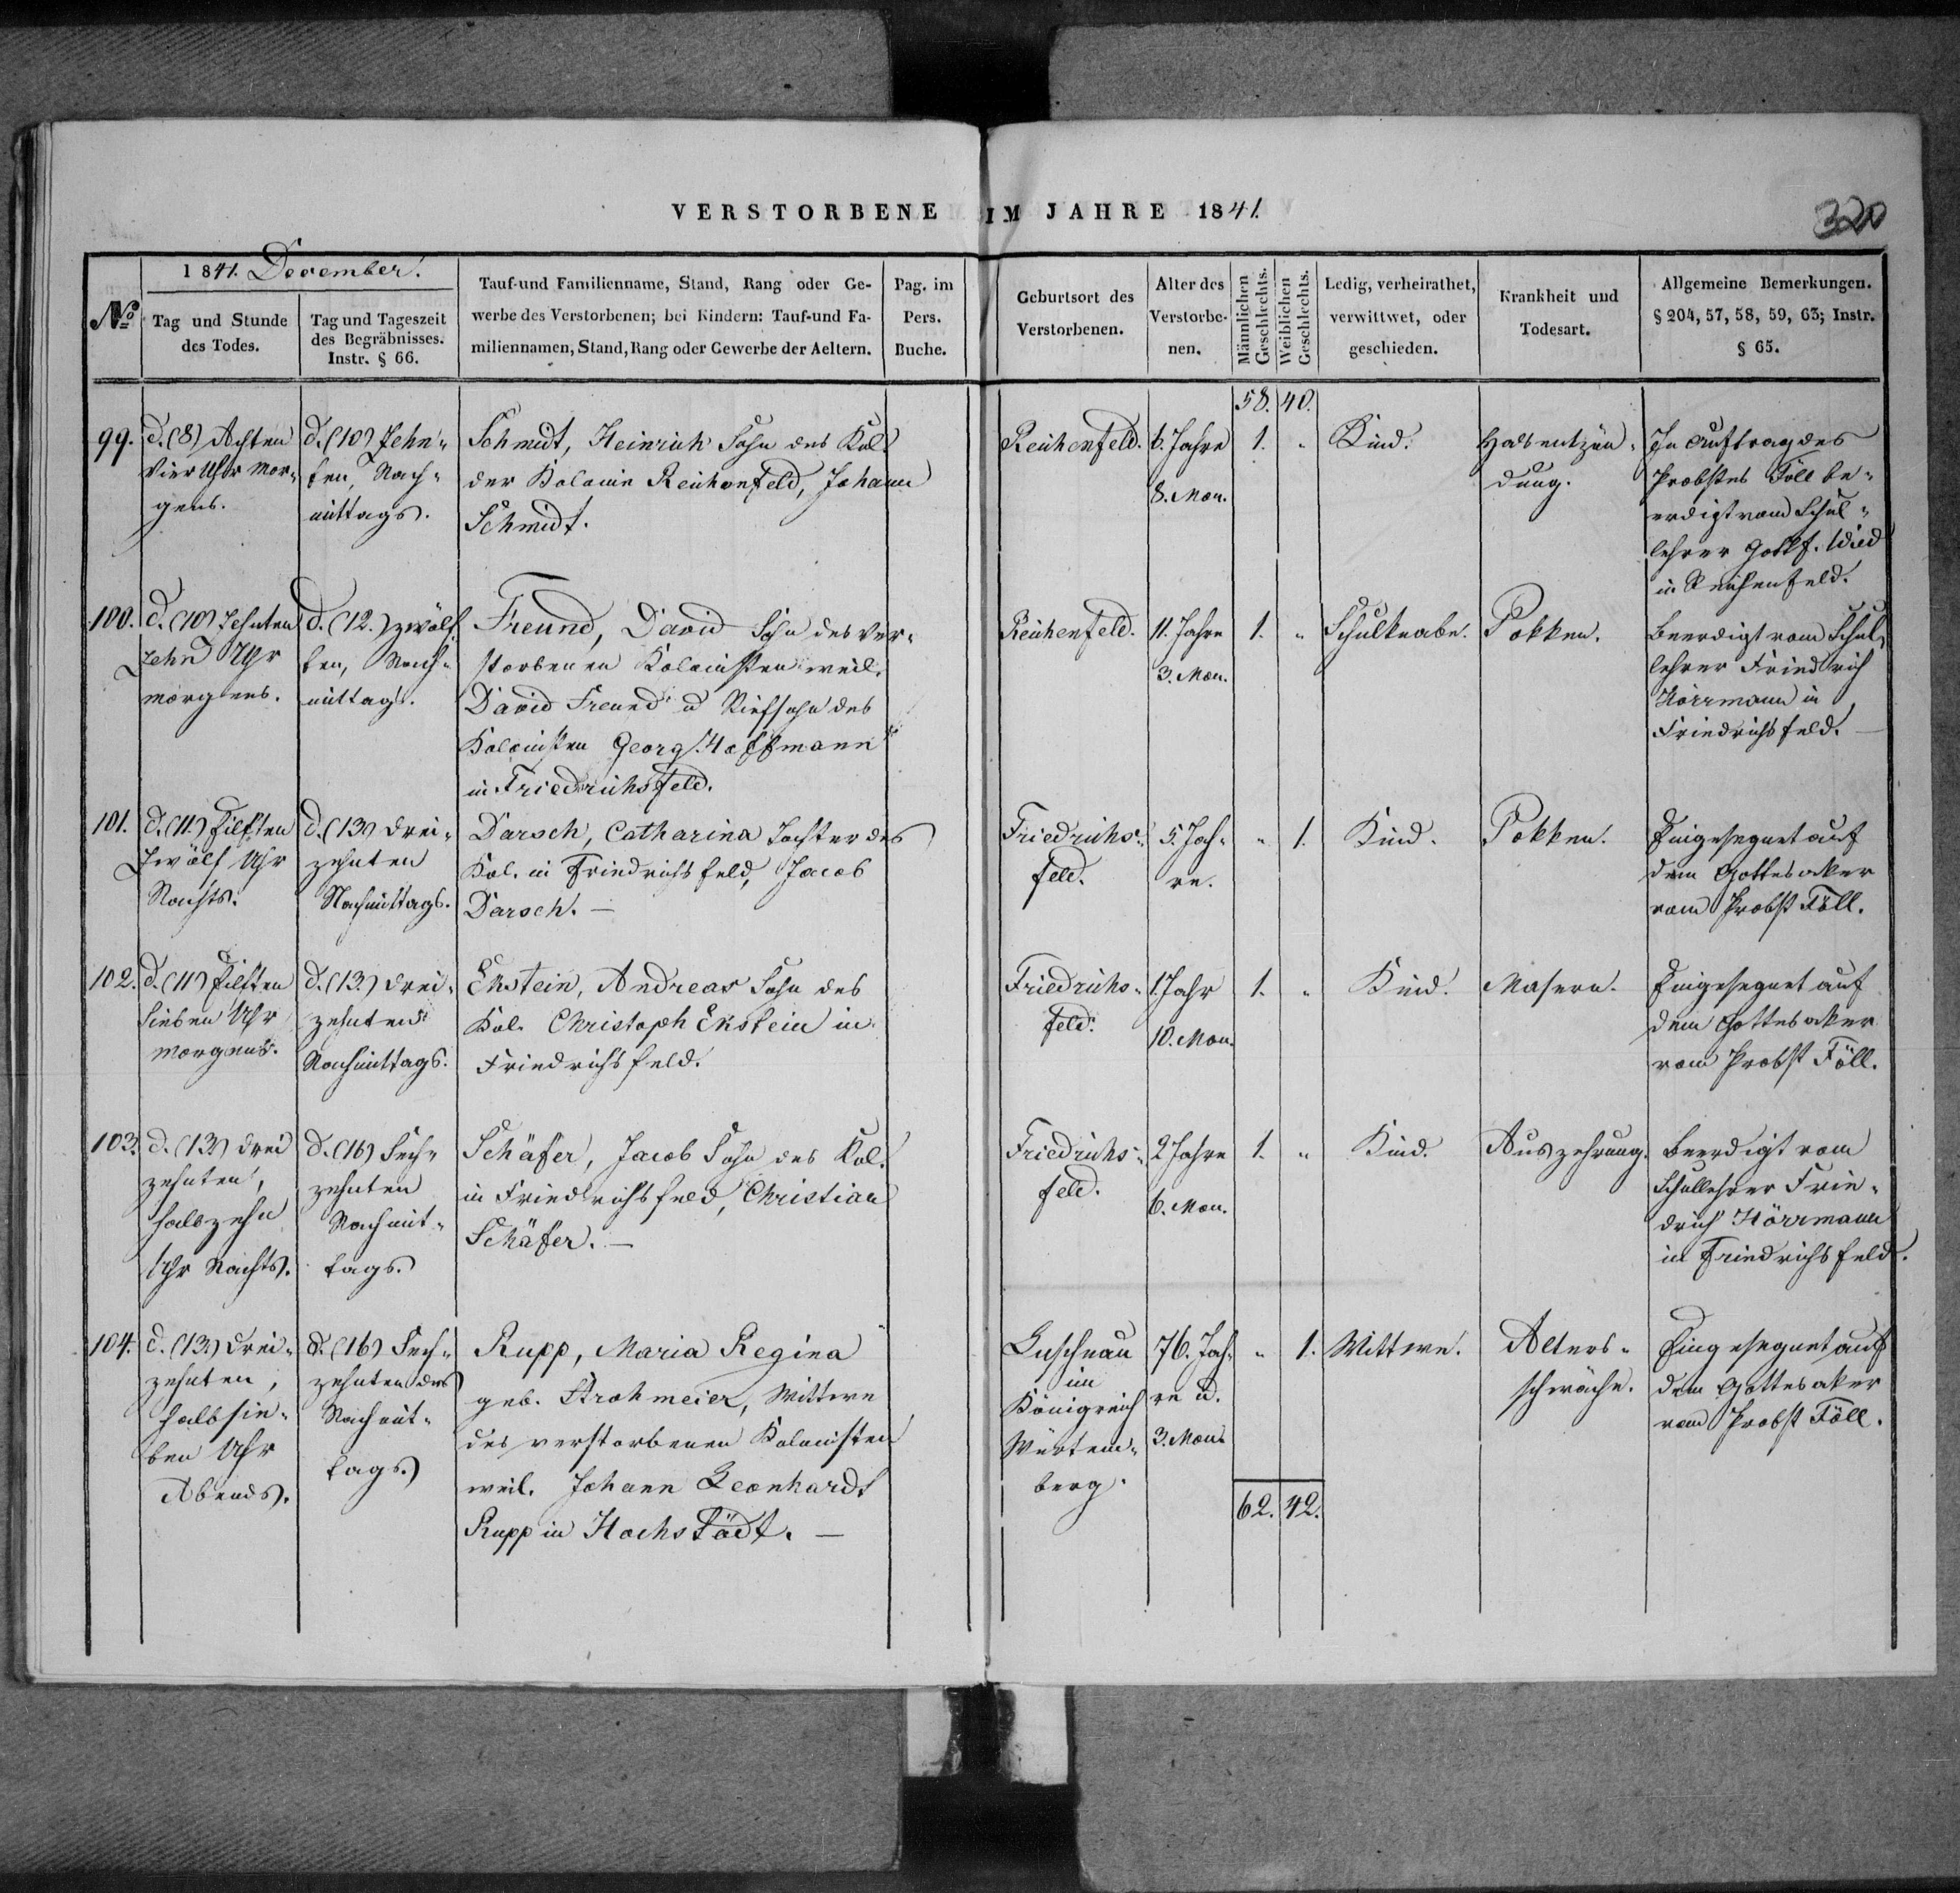 VERSTORBENE IM JAHRE 1841.
320
No
1841. December.
Tag und Stunde
des Todes.
Tag und Tageszeit
des Begräbnisses.
Instr. § 66.
Tauf- und Familienname, Stand, Rang oder Ge-
werbe des Verstorbenen; bei Kindern: Tauf- und Fa-
miliennamen, Stand, Rang oder Gewerbe der Aeltern.
Pag. im
Pers.
Buche.
Geburtsort des
Verstorbenen.
Alter des
Verstorbe-
nen.
Männlichen
Geschlechts.
Weiblichen
Geschlechts.
Ledig, verheirathet,
verwittwet, oder
geschieden.
Krankheit und
Todesart.
Allgemeine Bemerkungen.
§ 204, 57, 58, 59, 63; Instr.
§ 65.
58. 40.
99.
d. (8) Achten
Vier Uhr Mor-
gens.
d. (10) Zehn-
ten, Nach-
mittags.
Schmidt, Heinrich Sohn des Kol.
der Kolonie Reichenfeld, Johann
Schmidt.
Reichenfeld.
6. Jahre
8. Mon.
1.
"
Kind.
Halsentzün-
dung.
In Auftrag des
Probstes Föll be-
erdigt vom Schul-
lehrer Gottf. Wied
in Reichenfeld.
100.
d. (10) Zehnten
Zehn Uhr
morgens.
d. (12.) zwölf
ten, Nach-
mittags.
Freund, David Sohn des ver-
storbenen Kolonisten weil.
David Freund u Stiefsohn des
Kolonisten Georg Hoffmann
in Friedrichsfeld.
Reichenfeld.
11. Jahre
3. Mon.
1.
"
Schulknabe.
Pokken.
Beerdigt vom Schul-
lehrer Friedrich
Hörrmann in
Friedrichsfeld. —
101.
d. (11.) Eilften
Zwölf Uhr
Nachts.
d. (13) drei-
zehnten
Nachmittags.
Darsch, Catharina Tochter des
Kol. in Friedrichsfeld, Jacob
Darsch. —
Friedrichs-
feld.
5. Jah-
re.
"
1.
Kind.
Pokken.
Eingesegnet auf
dem Gottesaker
vom Probst Föll.
102.
d. (11) Eilften
Sieben Uhr
morgens.
d. (13.) drei-
zehnten
Nachmittags.
Ekstein, Andreas Sohn des
Kol. Christoph Ekstein in
Friedrichsfeld.
Friedrichs-
feld.
1. Jahr
10. Mon.
1.
"
Kind.
Masern.
Eingesegnet auf
dem Gottesaker
vom Probst Föll.
103.
d. (13) drei
zehnten,
halb zehn
Uhr Nachts.
d. (16) Sech-
zehnten
Nachmit-
tags.
Schäfer, Jacob Sohn des Kol.
in Friedrichsfeld, Christian
Schäfer. —
Friedrichs-
feld.
2 Jahre
6. Mon.
1.
"
Kind.
Auszehrung.
Beerdigt vom
Schullehrer Frie-
drich Hörrmann
in Friedrichsfeld.
104.
d. (13.) drei-
zehnten,
halb sie-
ben Uhr
Abends.
d. (16) Sech-
zehnten des
Nachmit-
tags.
Rupp, Maria Regina
geb. Strohmeier, Wittwe
des verstorbenen Kolonisten
weil. Johann Leonhardt
Rupp in Hochstädt. —
im
Königreich
Würtem-
berg.
76. Jah-
re u.
3. Mon.
"
1.
Wittwe.
Alters-
schwäche.
Eingesegnet auf
dem Gottesaker
vom Probst Föll.
62. 42.